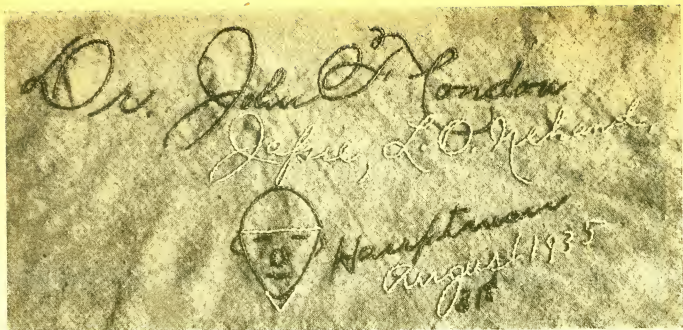 Dr. John F. Condon
Jafsie, L. O. Mehand,
Hauptmann
August 1935